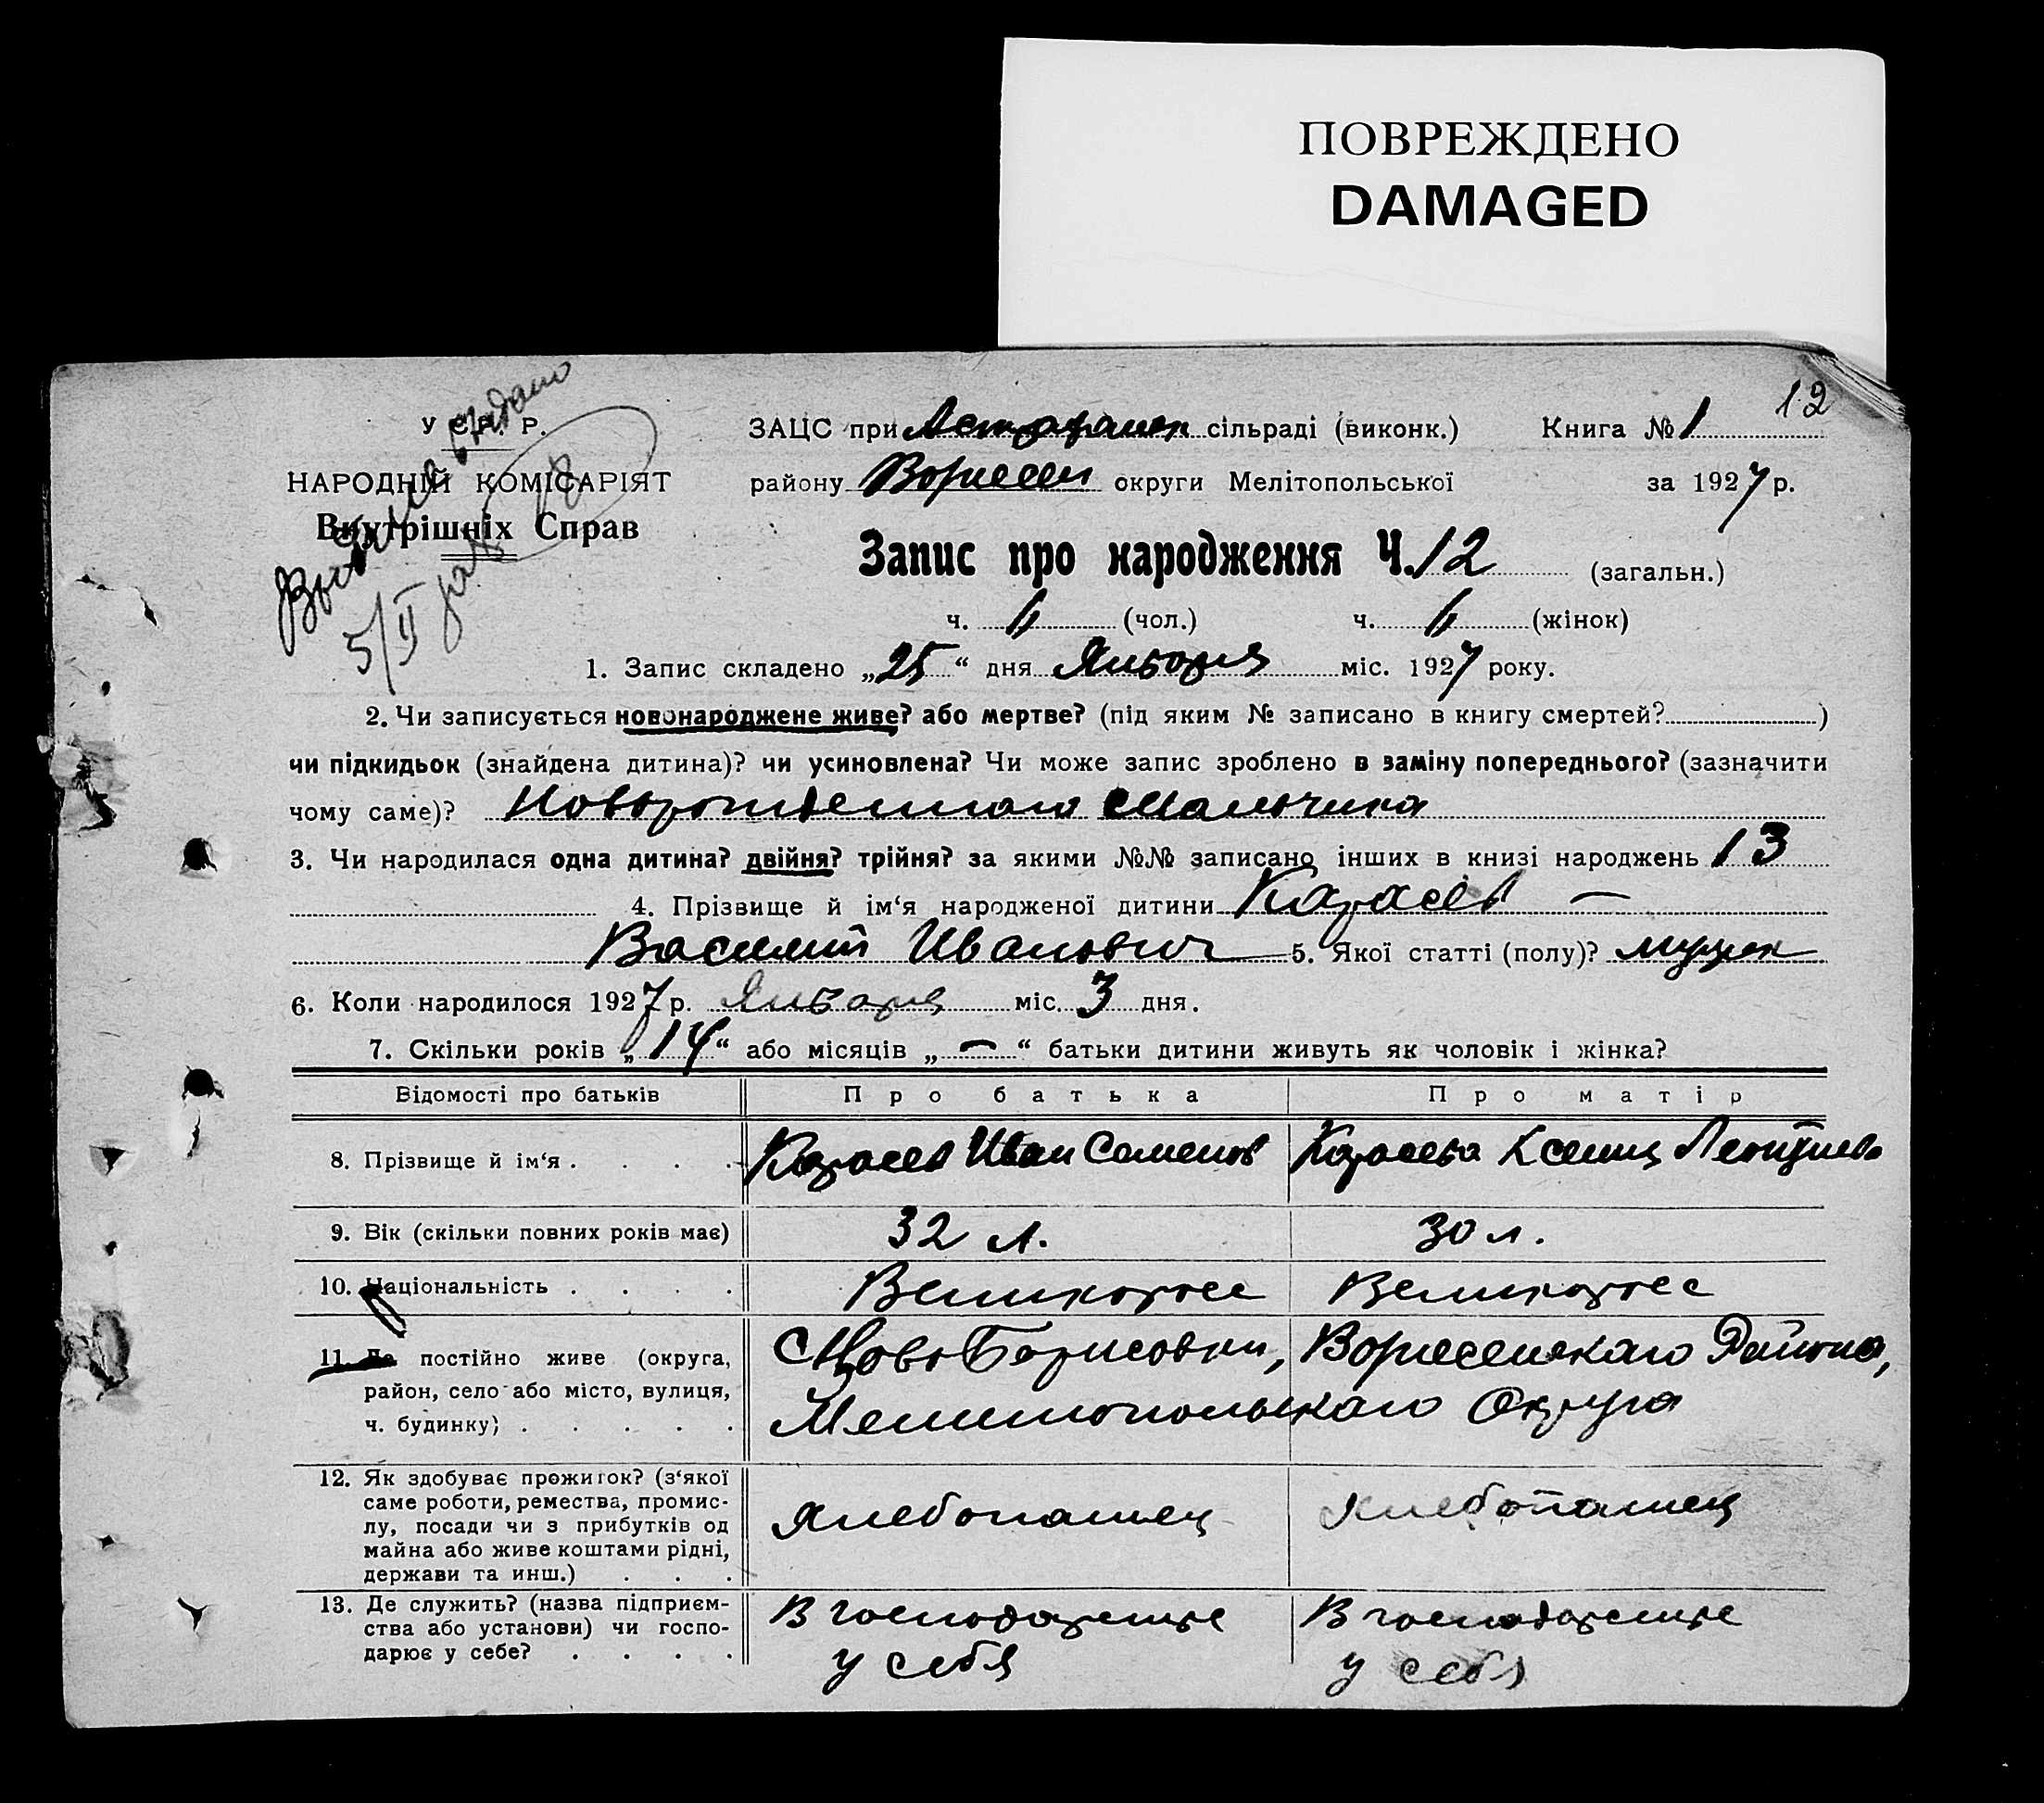 ПОВРЕЖДЕНО
DAMAGED
12
У С.Р. Р.
НАРОДНІЙ КОМІСАРІЯТ
Внутрішніх Справ
5/II
ЗАЦС при Астрахан сільраді (виконк.) Книга № 1
району округи Мелітопольської за 1927 р.
Запис про народження Ч. 12 (загальн.)
ч. 6 (чол.) ч. 6 (жінок)
1. Запис складено „25“ дня Января міс. 1927 року.
2. Чи записується новонароджене живе? або мертве? (під яким № записано в книгу смертей? )
чи підкидьок (знайдена дитина)? чи усиновлена? Чи може запис зроблено в заміну попереднього? (зазначити
чому саме)? Новорожденного мальчика
3. Чи народилася одна дитина? двійня? трійня? за якими №№ записано інших в книзі народжень 13
4. Прізвище й ім‘я народженої дитини Карасев —
Василий Иванович 5. Якої статті (полу)? мужск
6. Коли народилося 1927 р. Января міс. 3 дня.
7. Скільки років „14“ або місяців „—“ батьки дитини живуть як чоловік і жінка?
Відомості про батьків Про батька Про матір
8. Прізвище й ім‘я . . . . Карасев Иван Семенов Карасева Ксения
9. Вік (скільки повних років має) 32 л. 30 л.
10. Національність . . . . Великорос Великорос
11. Де постійно живе (округа,
район, село або місто, вулиця,
ч. будинку) . . . . .
Ново Борисовки, Района,
Мелитопольскаго Округа
12. Як здобуває прожиток? (з‘якої
саме роботи, ремества, промис-
лу, посади чи з прибутків од
майна або живе коштами рідні,
держави та инш.) . . .
Хлебопашец Хлебопашец
13. Де служить? (назва підприєм-
ства або установи) чи госпо-
дарює у себе? . . . .
В господарстве В господарстве
у себя у себя